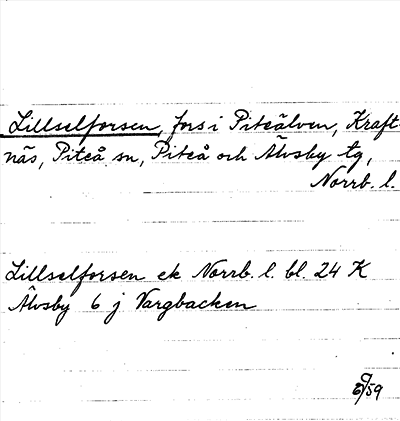 Lillselforsen, fors i Piteälven, Kraft-
näs, Piteå sn, Piteå och Älvsby tg,
Norrb. l.
Lillselforsen ek Norrb. l. bl. 24 K
Älvsby 6 j Vargbacken
/59